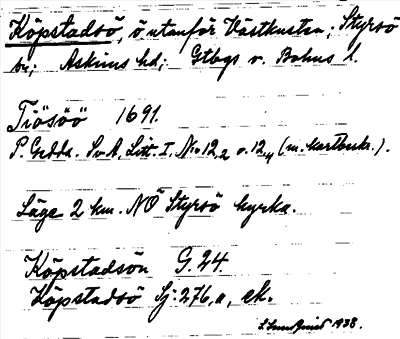 Köpstadsö, ö utanför Västkusten; Styrsö
sn; Askims hd; Gtbgs o. Bohus l.
Tiösöö 1691.
P. Gedda. SvA, Litt. I, No 12,2 o. 12,4 (m. kartbeskr.).
Läge 2 km. NÖ Styrsö kyrka.
Köpstadsön G. 24.
Köpstadsö Sj. 276, a, ek.
S. Lundquist 1938.